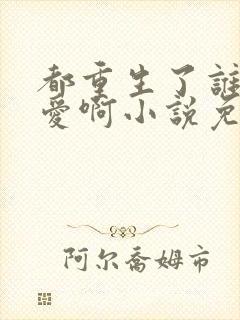 都重生了誰
愛啊小說免
阿尔喬姆市